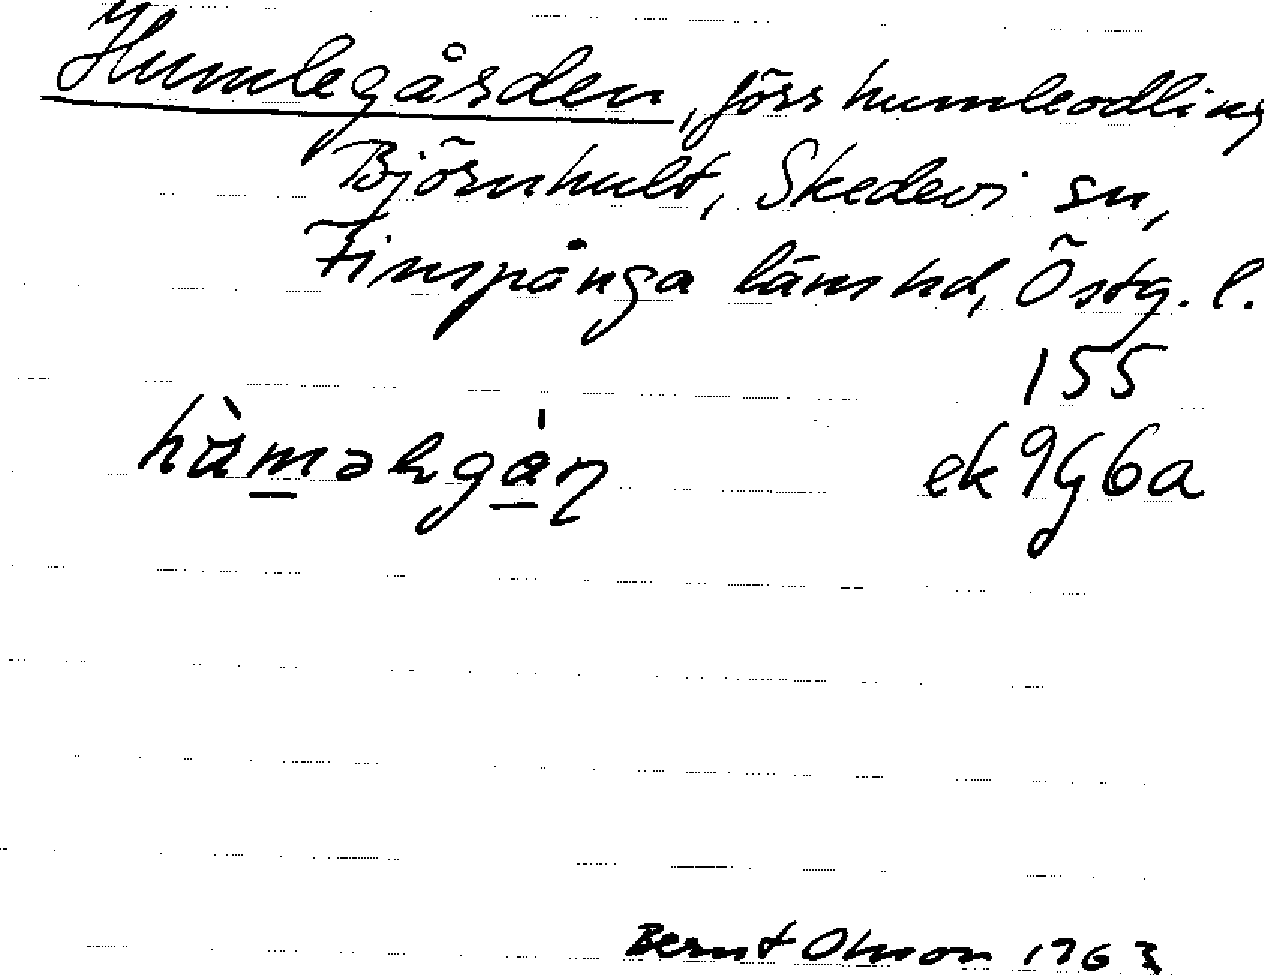 Humlegården, förr humleodling
Björnhult, Skedevi sn,
Finspånga läns hd, Östg. l.
155
hàməkgán ek 9G6a
Bernt Olsson 1963